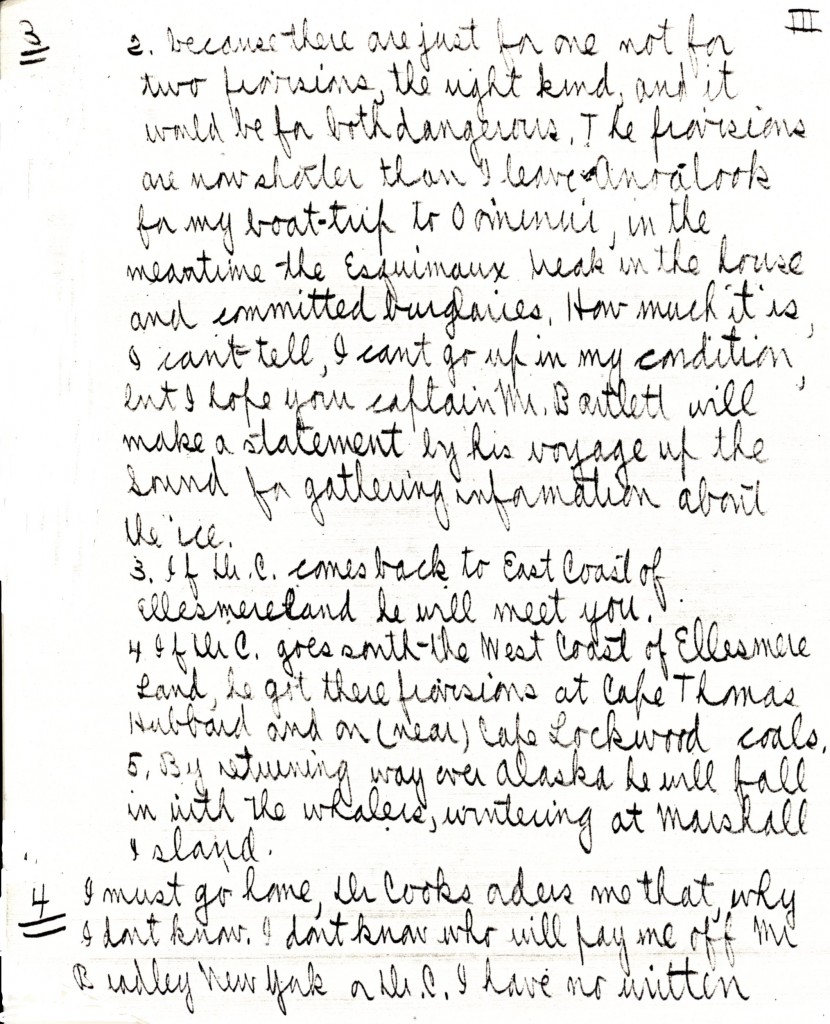 III
3 2. because there are just for one not for
two provisions, the right kind, and it
would be for both dangerous. The provisions
are now shorter than I leave Anoatook
for my boat-trip to Oominui, in the
meantime the Esquimaux break in the house
and committed burglaries. How much it is,
I can't tell, I cant go up in my condition,
but I hope your captain Mr. Bartlett will
make a statement by his voyage up the
Sound for gathering information about
the ice.
3. If Dr. C. comes back to East Coast of
Ellesmereland he will meet you.
4 If Dr C. goes south the West Coast of Ellesmere
Land, he got there provisions at Cape Thomas
Hubbard and on (near) Cape Lockwood coals.
5. By returning way over Alaska he will fall
in with the whalers, wintering at Marshall
Island.
4 I must go home, Dr Cooks orders me that, why
I dont know. I dont know who will pay me off Mr
Bradley New York or Dr. C. I have no written